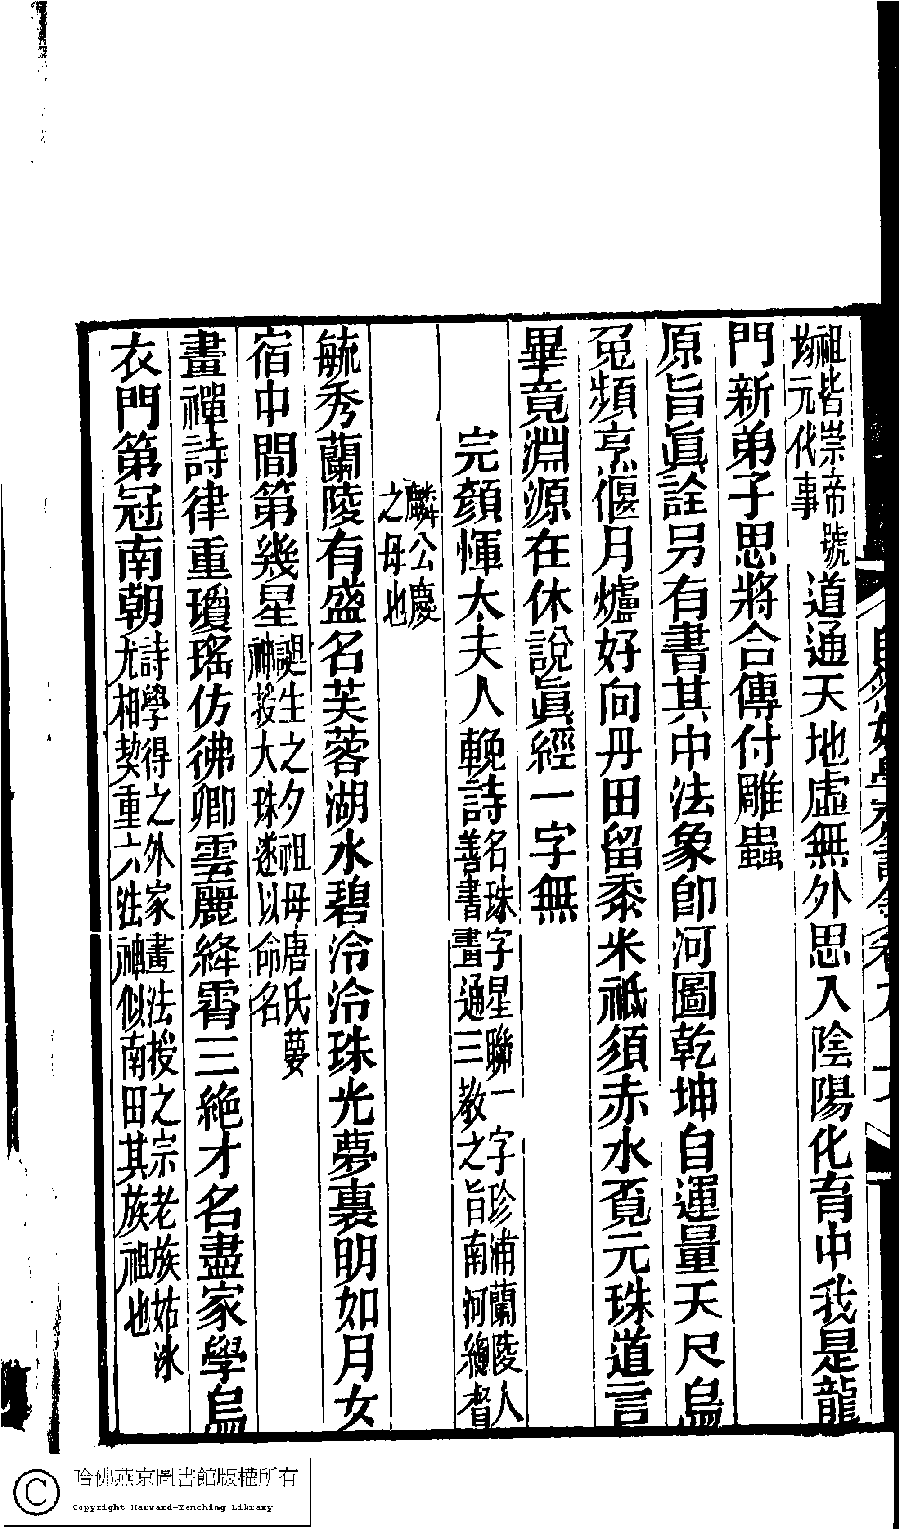 祖皆崇帝號均元代事道通天地虛無外思入陰陽化育中我是龍
門新弟子思將合傳付雕蟲
原旨眞詮另有書其中法象卽河圖乾坤自運量天尺烏
兎頻烹偃月爐好向丹田留黍米祗須赤水覔元珠道言
畢竟淵源在休說眞經一字無
完顏惲太夫人輓詩名珠字星聯一字珍浦蘭陵人善書畫通三教之旨南河總督
麟公慶之母也
毓秀蘭陵有盛名芙蓉湖水碧泠泠珠光夢裏明如月女
宿中間第幾星誕生之夕祖母唐氏夢神授大珠遂以命名
畫禪詩律重瓊瑤仿彿卿雲麗絳霄三絶才名盡家學烏
衣門第冠南朝詩學得之外家畫法授之宗老族姑冰尤相契重六法神似南田其族祖也
哈佛燕京圖書館版權所有
Copyright Harvard-Yenching Library